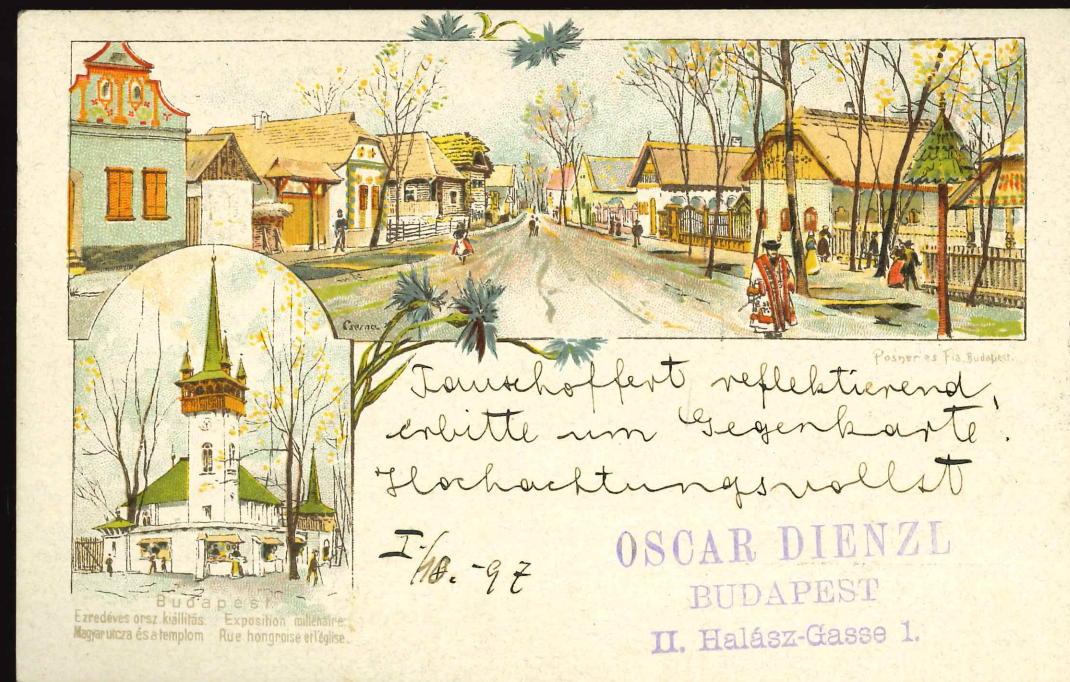 Cserna
Posner és Fia, Budapest.
Tauschoffert reflektierend,
erbitte um Gegenkarte.
Hochachtungsvollst
I/18. -97
OSCAR DIENZL
BUDAPEST
II. Halász-Gasse 1.
Budapest
Ezredéves orsz. kiállitás. Exposition millénaire.
Magyar utcza és a templom Rue hongroise et l'église.